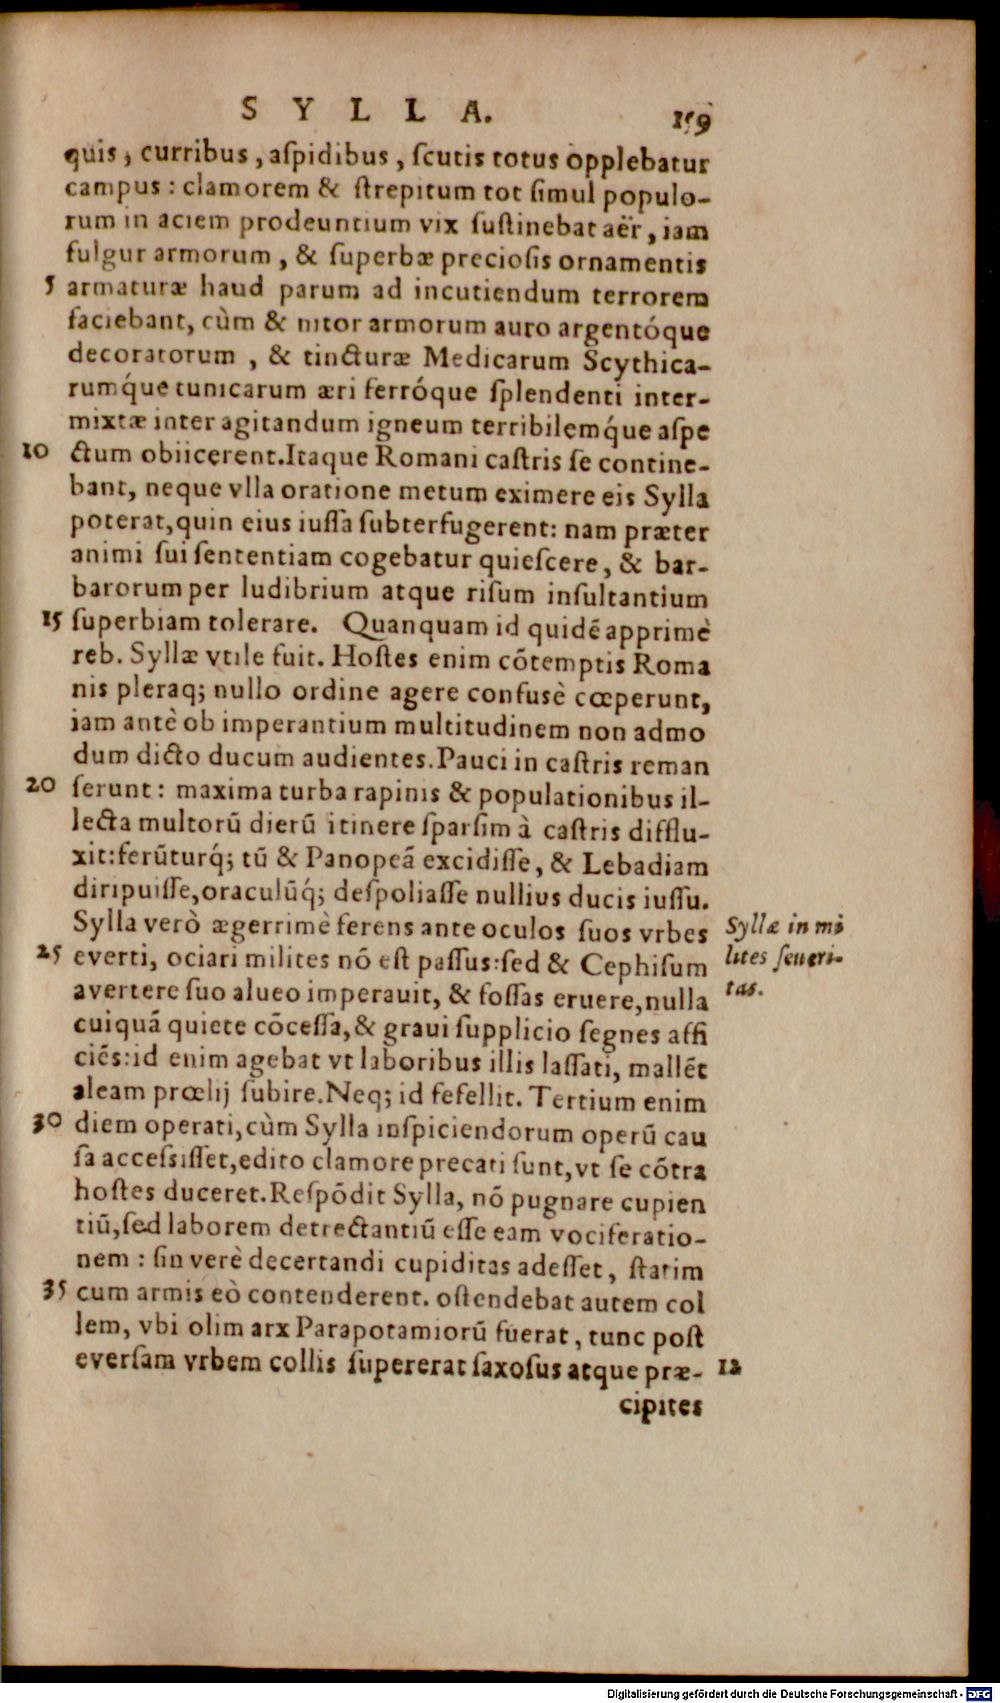 SYLLA. 159
quis, curribus, aſpidibus, ſcutis totus opplebatur
campus: clamorem & ſtrepitum tot ſimul populo-
rum in aciem prodeuntium vix ſuſtinebat aër, iam
fulgur armorum, & ſuperbæ precioſis ornamentis
5 armaturæ haud parum ad incutiendum terrorem
faciebant, cùm & nitor armorum auro argentóque
decoratorum, & tincturæ Medicarum Scythica-
rumq́ue tunicarum æri ferróque ſplendenti inter-
mixtæ inter agitandum igneum terribilemq́ue aſpe
10 ctum obiicerent. Itaque Romani caſtris ſe contine-
bant, neque vlla oratione metum eximere eis Sylla
poterat, quin eius iuſſa ſubterfugerent: nam præter
animi ſui ſententiam cogebatur quieſcere, & bar-
barorum per ludibrium atque riſum inſultantium
15 ſuperbiam tolerare. Quanquam id quidē apprimè
reb. Syllæ vtile fuit. Hoſtes enim cōtemptis Roma
nis pleraq; nullo ordine agere confusè cœperunt,
iam antè ob imperantium multitudinem non admo
dum dicto ducum audientes. Pauci in caſtris reman
20 ſerunt: maxima turba rapinis & populationibus il-
lecta multorū dierū itinere ſparſim à caſtris difflu-
xit: ferūturq́; tū & Panopeā excidiſſe, & Lebadiam
diripuiſſe, oraculūq́; deſpoliaſſe nullius ducis iuſſu.
Sylla verò ægerrimè ferens ante oculos ſuos vrbes
25 everti, ociari milites nō eſt paſſus: ſed & Cephiſum
avertere ſuo alueo imperauit, & foſſas eruere, nulla
cuiquā quiete cōceſſa, & graui ſupplicio ſegnes affi
ciēs: id enim agebat vt laboribus illis laſſati, mallēt
aleam prœlij ſubire. Neq; id fefellit. Tertium enim
30 diem operati, cùm Sylla inſpiciendorum operū cau
ſa acceſsiſſet, edito clamore precati ſunt, vt ſe cōtra
hoſtes duceret. Reſpōdit Sylla, nō pugnare cupien
tiū, ſed laborem detrectantiū eſſe eam vociferatio-
nem: ſin verè decertandi cupiditas adeſſet, ſtatim
35 cum armis eò contenderent. oſtendebat autem col
lem, vbi olim arx Parapotamiorū fuerat, tunc poſt
everſam vrbem collis ſupererat ſaxoſus atque præ- 12
cipites
Syllæ in mi
lites ſeueri-
tas.
Digitalisierung gefördert durch die Deutsche Forschungsgemeinschaft - DFG